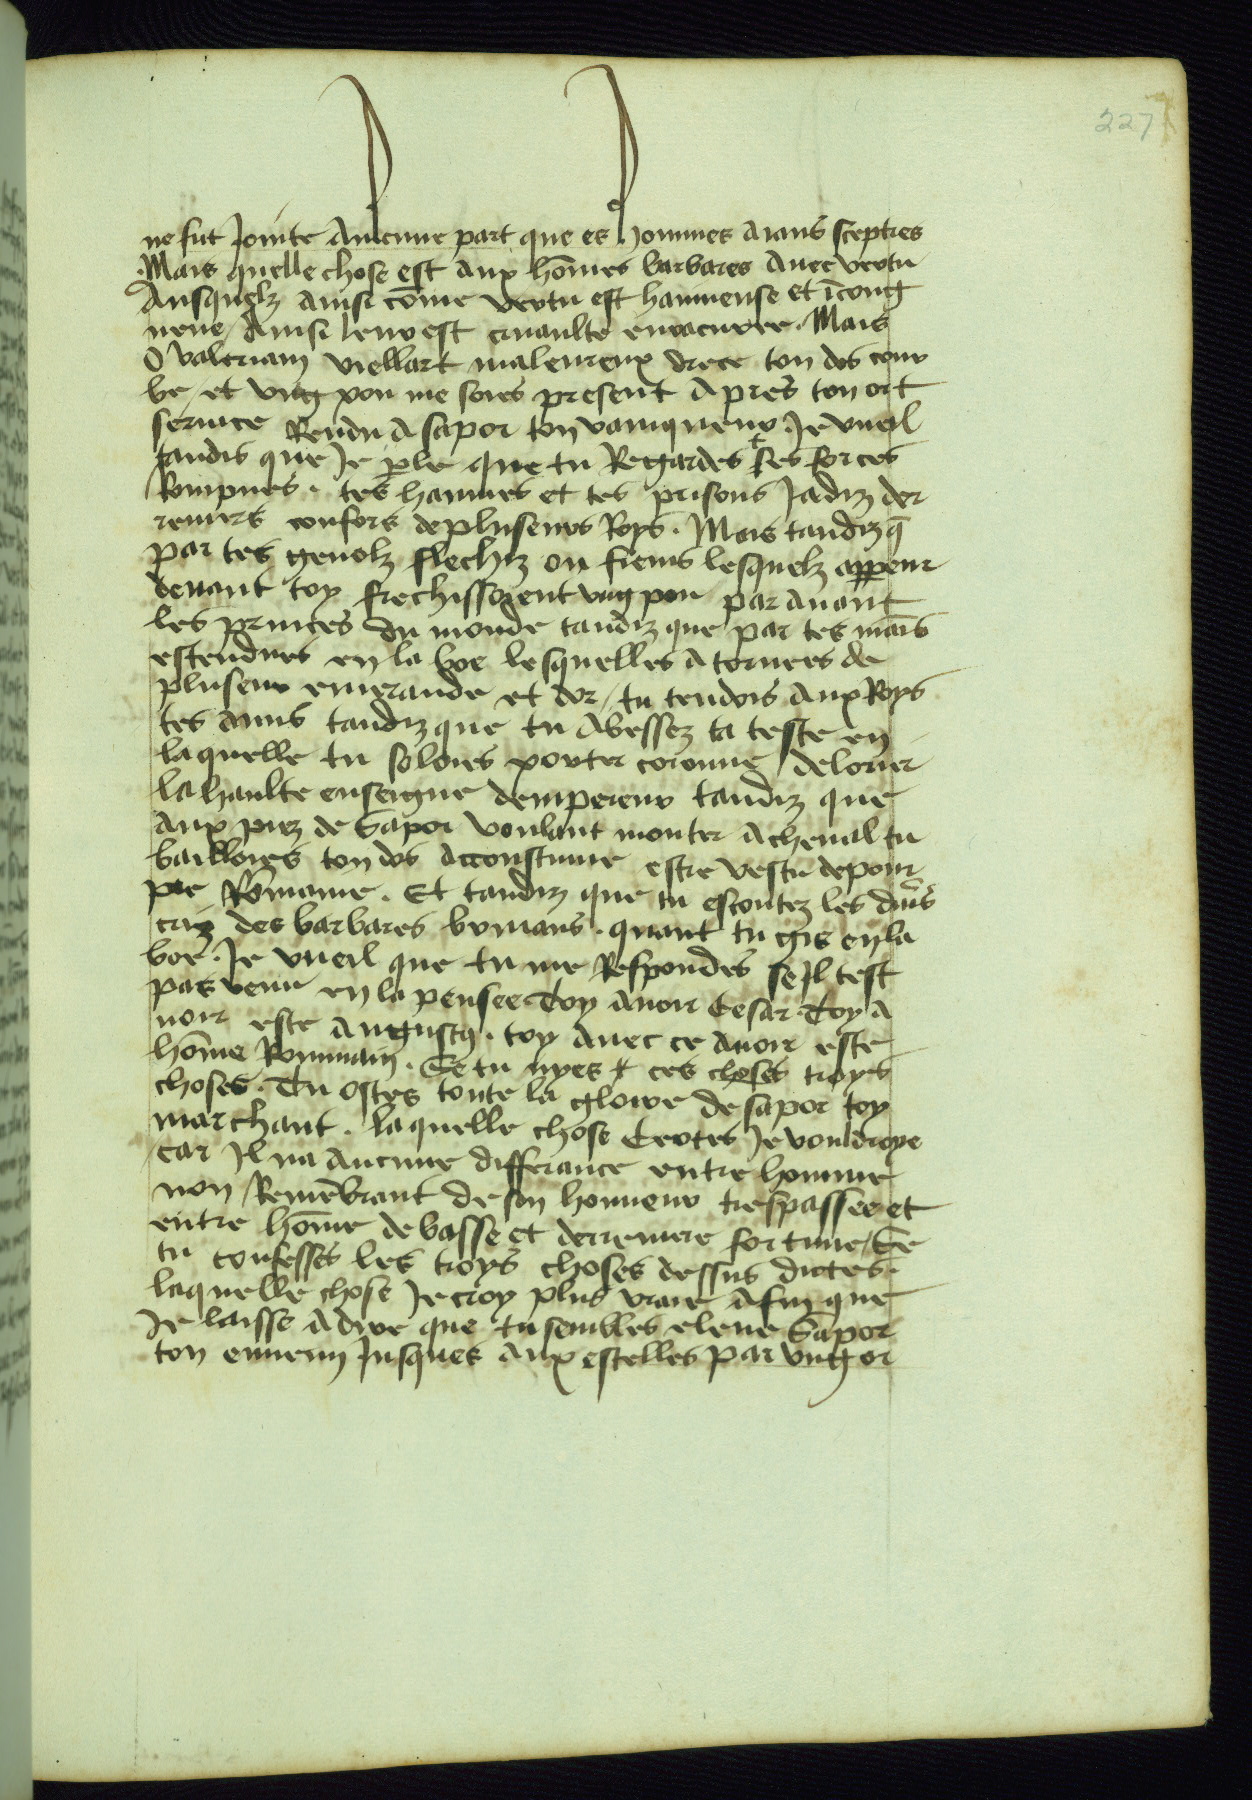 227
ne fut Jointe Aucune part que es hommes Aians sceptres
Mais quelle chose est Aux hōmes barbares Auec vertu
Ausquelz Ainsi cōme vertu est hayneuse et īcong
neue / Ainsi leur est cruaulte enracinee . Mais
O valerian viellart maleureux drece ton dos cour
be / et vng pou me soies present Apres ton ort
seruice Rendu A sapor ton vainqueur . Je vueil
tandis que Je ple que tu Regardes tes forces
Rompues . tes haynnes et tes prisons Jadiz der
reniers confors de pluseurs Roys . Mais tandiz q̄
par tes genolz flechiz ou fiens lesquelz
deuant toy flechissoient vng pou par auant
les princes du monde tandiz que par tes mais
estendues en la boe lesquelles Atornees de
pluseur emeraude et dor / tu tendois Aux Roys
tes Amis tandiz que tu Abessez ta teste en
laquelle tu soloies porter coronne de lorier
la haulte enseigne dempereur tandiz que
Aux piez de Sapor voulant monter A cheual tu
bailloies ton dos Accoustume estre vestu de pour
pre Rōmaine . Et tandiz que tu escoutez les
criz des barbares . quant tu gis en la
boe . Je vueil que tu me Respondes se Il test
pas venu en la pensee Toy Auoir Cesar . Toy A
uoir este Augustus . toy Auec ce Auoir este
hōme Rommain . Se tu nyes ces choses troys
choses . Tu ostes toute la gloire de sapor toy
marchant . laquelle chose Certes Je vouldroye
Car Il na Aucune differance entre homme
non Remēbrant de son honneur trespassee et
entre hōme de basse et derreniere fortune / Se
tu confesses les troys choses dessus dictes .
laquelle chose Je croy plus vraie Afin que
Je laisse A dire que tu sembles eleue Sapor
ton ennemy Jusques Aux estelles par vng or